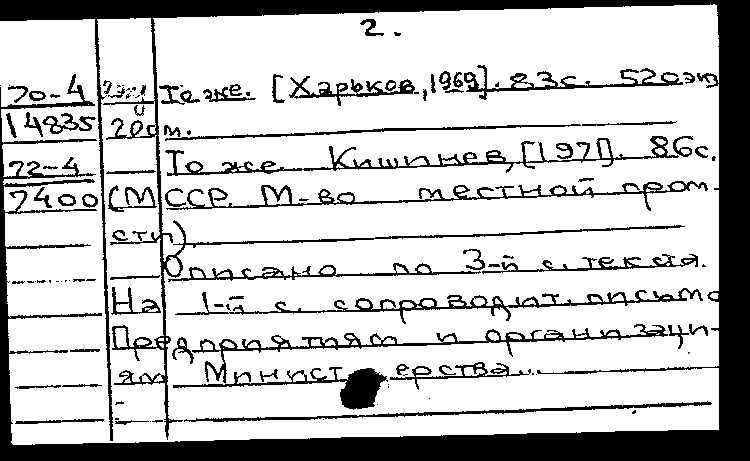 2.
70-4 То же. [Харьков, 1969]. 83с. 520 экз
14835 200м.
72-4 То же. Кишинев, [197]. 86с.
7400 (МССР. М-во местной пром-
сти).
Описано по 3-й с. текста.
На 1-й с. сопроводит. письмо
Предприятиям и организаци-
ям Министерства...